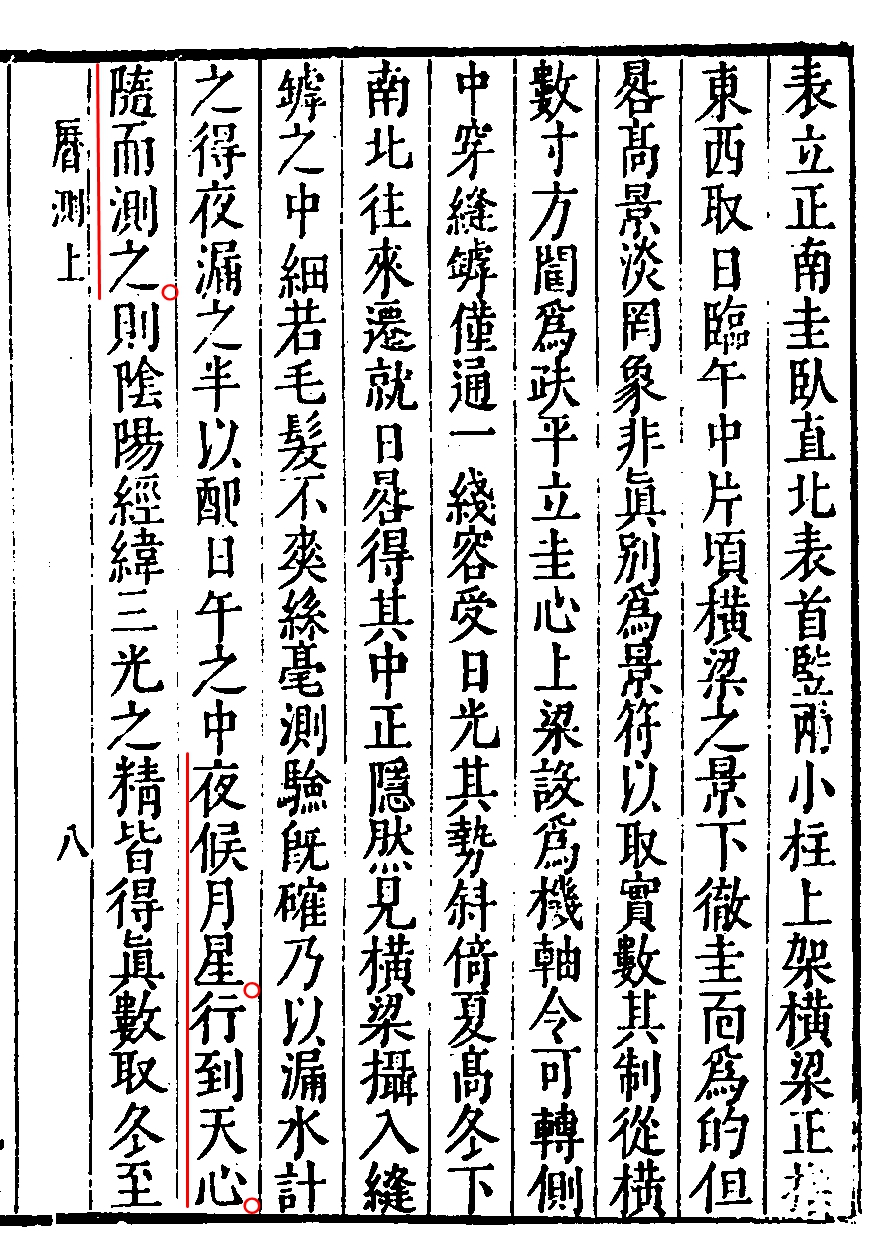 表立正南圭臥直北表首監兩小柱上架橫梁正
東西取日臨午中片頃橫梁之景下徹圭面為的但
晷髙景淡罔象非眞別為景符以取實數其制從橫
數寸方闊為趺平立圭心上梁設為機軸令可轉側
中穿縫罅僅通一綫容受日光其勢斜倚夏髙冬下
南北往來遷就日晷得其中正隱然見橫梁攝入縫
罅之中細若毛髮不爽絲毫測驗旣確乃以漏水計
之得夜漏之半以配日午之中夜候月星行到天心
隨而測之則陰陽經緯三光之精皆得眞數取冬至
曆測上
八